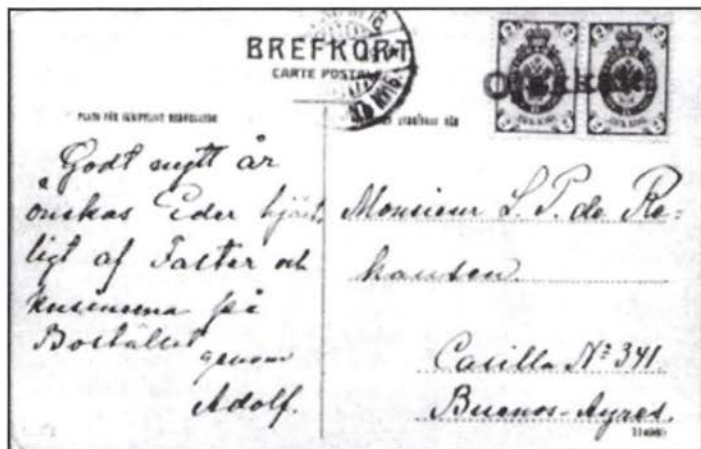 BREFKORT
CARTE POSTALE
Godt nytt år
önskas Eder hjärt-
ligt af Faster och
kusinerna på
Bostället
genom
Adolf.
Monsieur L. P. de Re=
hausen.
Casilla Nº 341.
Buenos-Ayres.